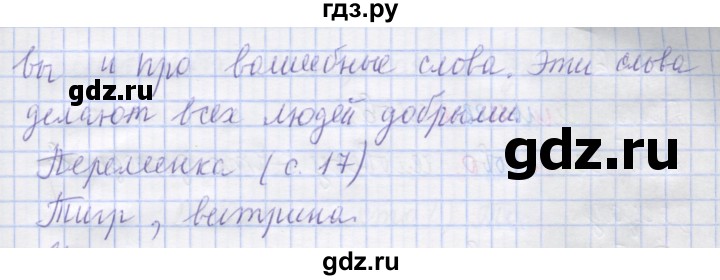 гдз.ру
вы и про волшебные слова. Эти слова
делают всех людей добрыми
Переменка (с. 17)
Тигр, витрина.
gdz.ru
gdz.ru
gdz.ru
gdz.ru